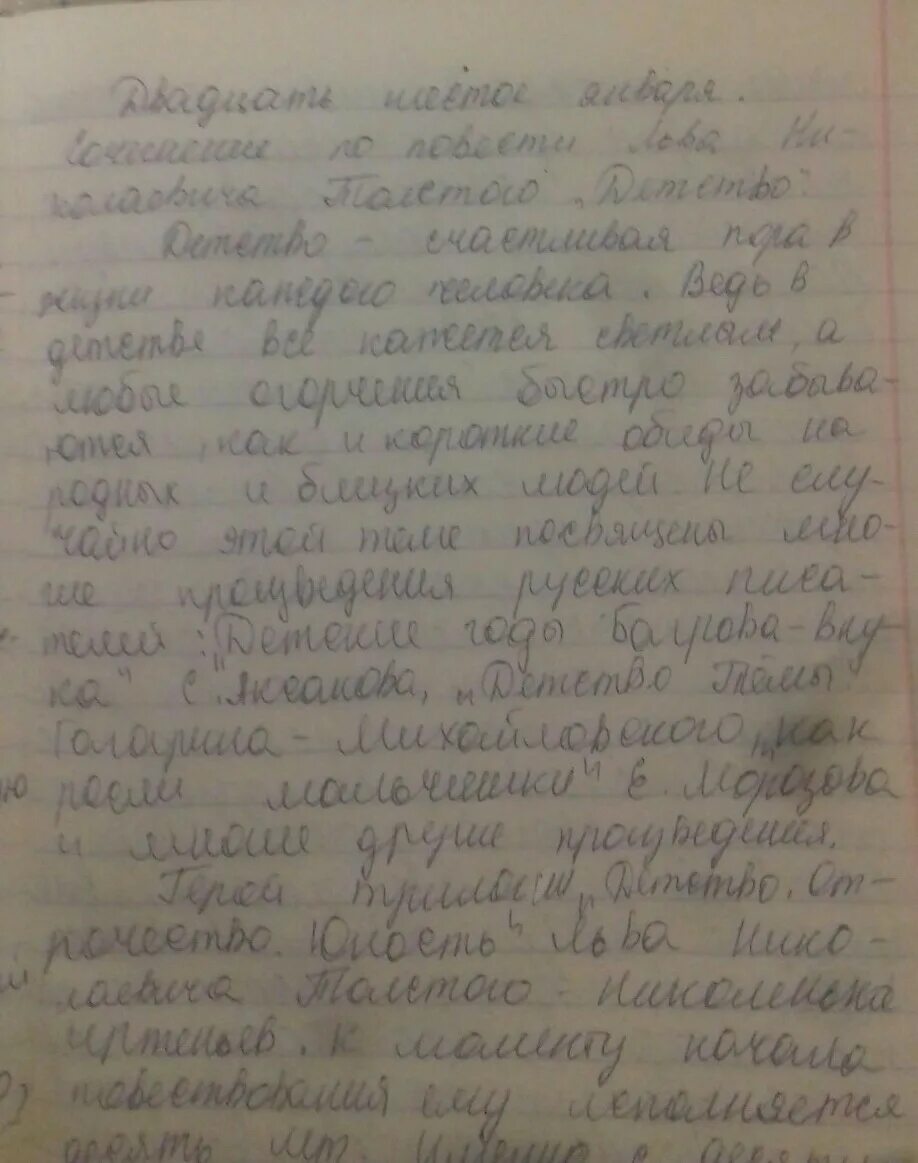 Двадцать шестое января.
Сочинение по повести Льва Ни-
колаевича Толстого „Детство".
Детство - счастливая пора в
жизни каждого человека. Ведь в
детстве всё кажется светлым, а
любые огорчения быстро забыва-
ются, как и короткие обиды на
родных и близких людей. Не слу-
чайно этой теме посвящены мно-
гие произведения русских писа-
телей: „Детские годы Багрова-вну-
ка" С. Аксакова, „Детство Тёмы"
Гагарина - Михайловского, „как
росли мальчишки" Е. Морозова
и многие другие произведения.
Герой трилогии „Детство. От-
рочество. Юность" Льва Нико-
лаевича Толстого - Николенька
Иртеньев. К моменту начала
повествования ему исполняется
десять лет. Именно с